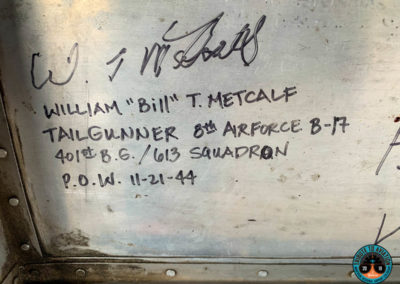 W. T Metcalf
WILLIAM "Bill" T. METCALF
TAILGUNNER 8th AIRFORCE B-17
401st B.G./613 SQUADRON
P.O.W. 11-21-44